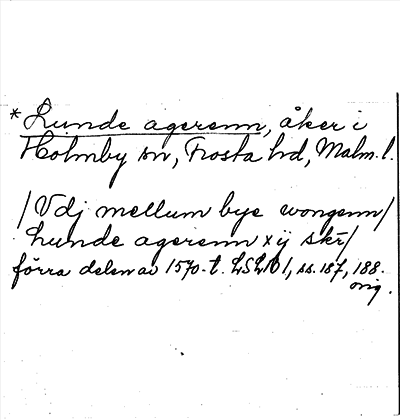 * Lunde agerenn, åker i
Holmby sn, Frosta hd, Malm. l.
/Vdj mellum bye wongenn/
Lunde agerenn x ij skr/
förra delen av 1570-t. LSLIO 1, ss. 187, 188.
orig.